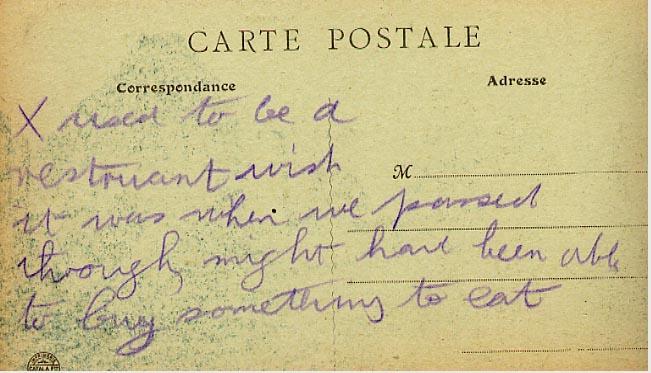 CARTE POSTALE
Correspondance
Adresse
X used to be a
restruant wish
M
it was when we passed
through might have been able
to buy something to eat
IMPRIMERIE
CATALA FRES